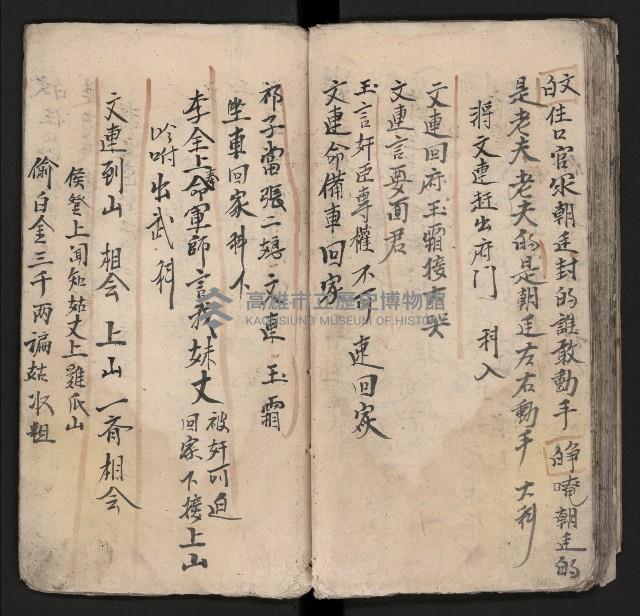 文住口官家朝廷封的誰敢動手 淨唵朝廷的
的是老夫老夫的是朝廷左右動手 大科
將文連赶出府門 科入
文連回府玉霜接介哭
文連言要面君
玉言奸臣專權不可 連回家
文連命備車回家
祁子當張二嫂文連玉霜
坐車回家科下
李全上奏命軍師言我妹丈被奸所迫
回家下接上山
吩咐出武科
文連到山 相会 上山一齊相会
侯登上闻知姑丈上雞爪山
偷白金三千両謆姑收粗
高雄市立歷史博物館
KAOHSIUNG MUSEUM OF HISTORY